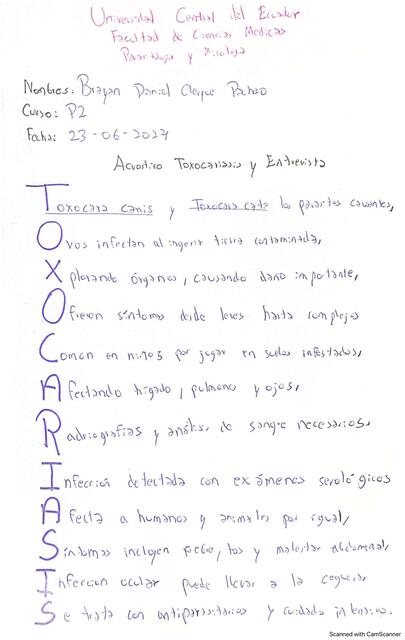 Universidad Central del Ecuador
Facultad de Ciencias Medicas
Parasitologia y Micologia
Nombres: Brayan Daniel Clerque
Curso: P2
Fecha: 23-06-2024
Acrostico Toxocariasis y Entrevista
Toxocara canis y Toxocara cate los parasitos causantes,
Ovos infectan al ingerir tierra contaminada,
Xplorando órganos, causando daño importante,
Ofrecen síntomas desde leves hasta complejos
Comun en niños por jugar en suelos infestados,
Afectando higado, pulmones y ojos,
Radriografias y análisis de sangre necesarios,
Infección detectada con exámenes serológicos
Afecta a humanos y animales por igual,
Síntomas incluyen fiebre, tos y malestar abdominal,
Infección ocular puede llevar a la ceguera,
Se trata con antiparasitarios y cuidado intensivo.
Scanned with CamScanner